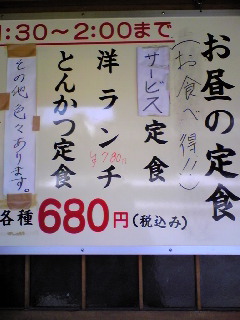 1:30～2:00まで
お昼の定食
(お食べ得!!)
サービス定食
洋ランチ
780
とんかつ定食
その他色々あります。
各種680円(税込み)